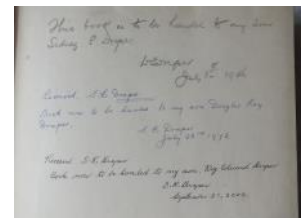 This book is to be handed to my son
Sidney E Draper
W Draper
July
Received S. E. Draper
Book now to be handed to my son Douglas Ray
Draper.
S. E. Draper
July
Received D. R. Draper
Book now to be handed to my son, Ray Edward Draper
D. R. Draper
September 2